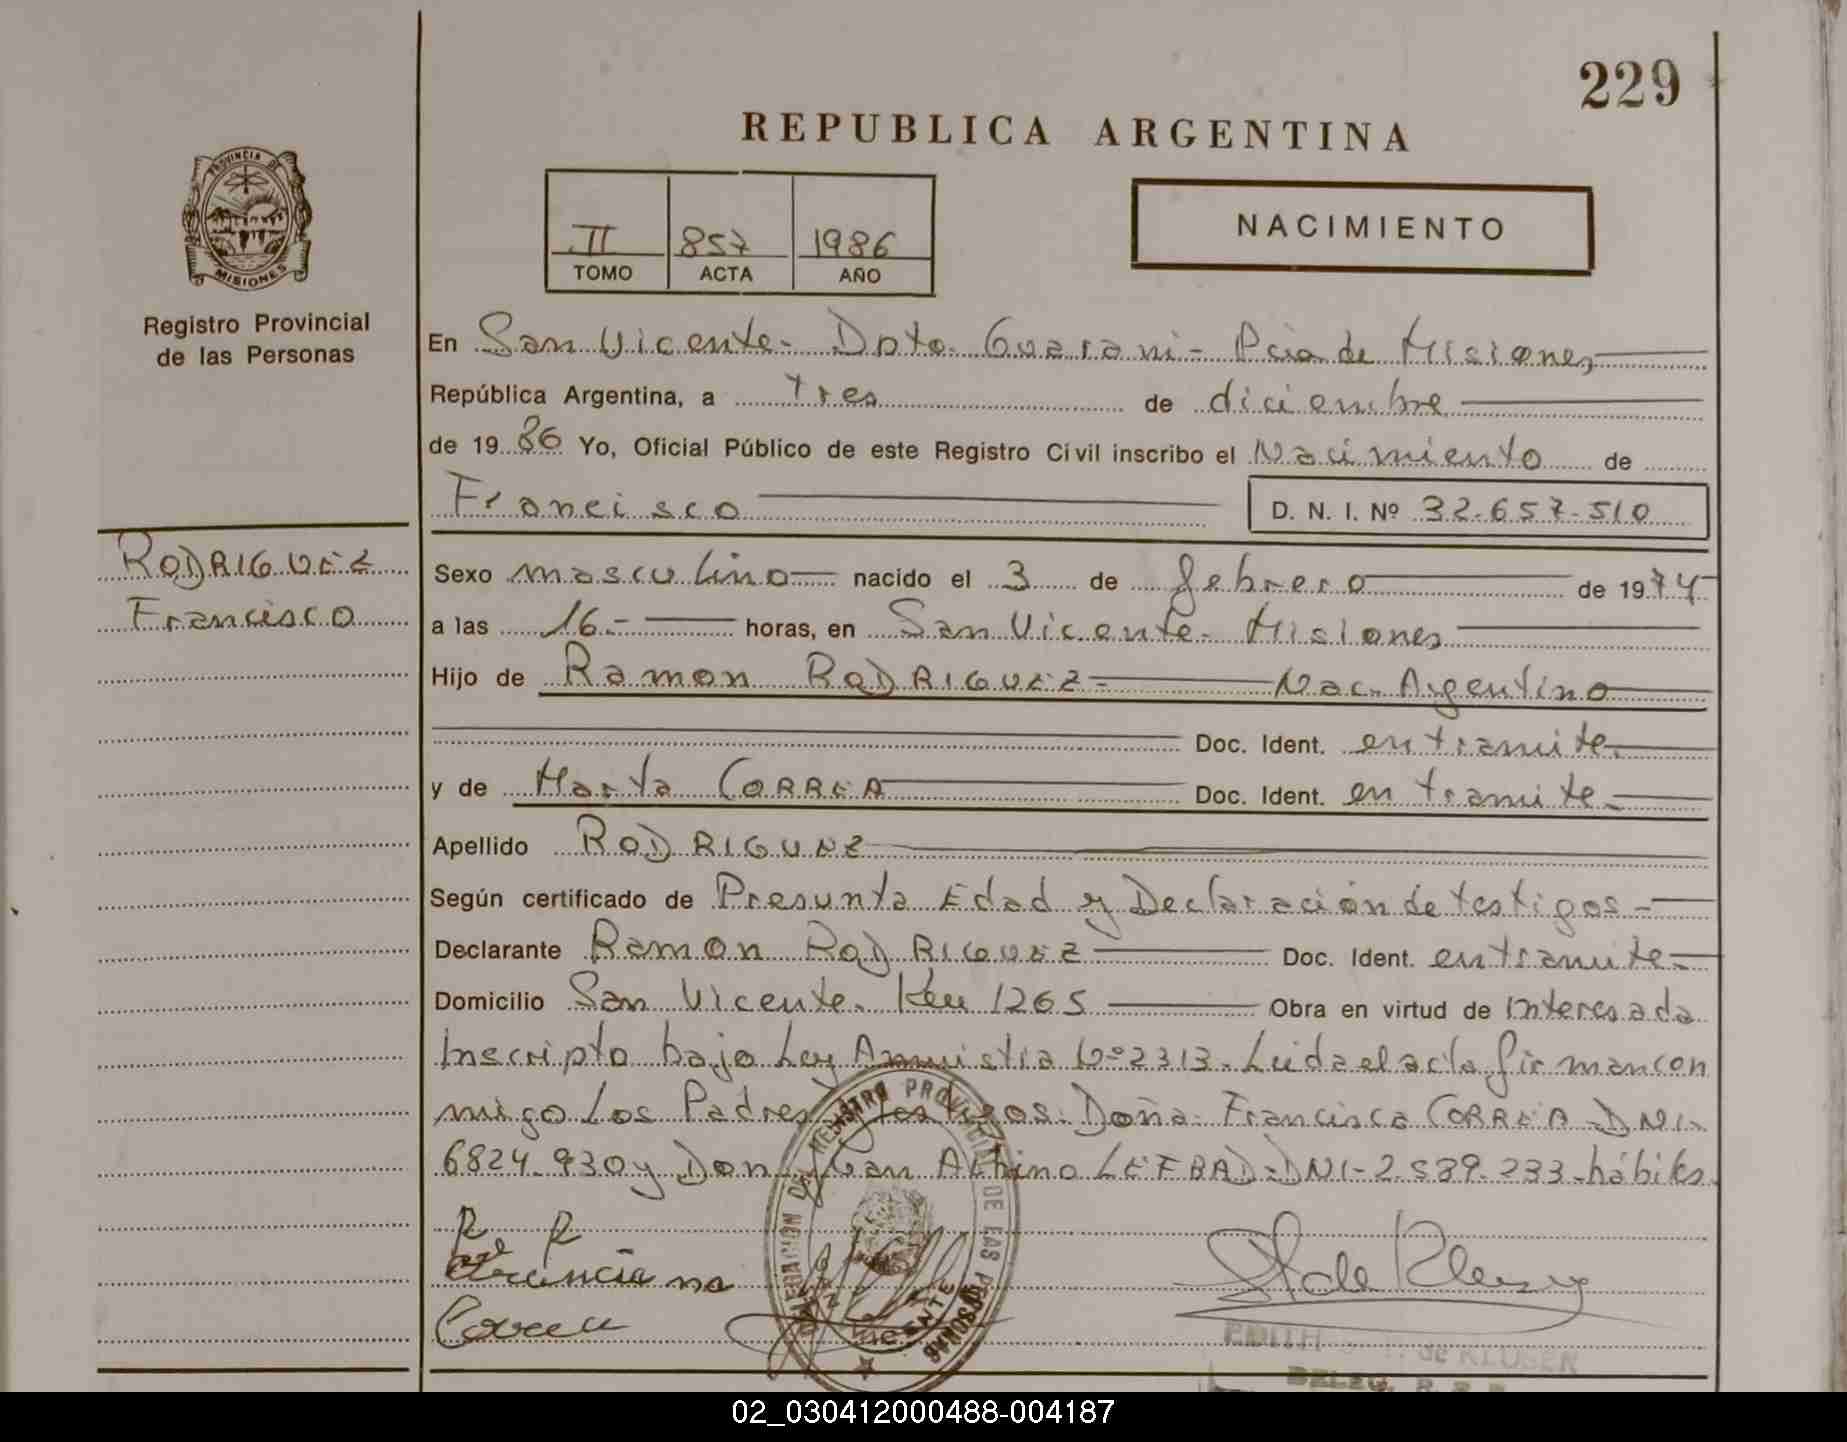 229
REPUBLICA ARGENTINA
PROVINCIA DE
MISIONES
Registro Provincial
de las Personas
II 857 1986
TOMO ACTA AÑO
NACIMIENTO
En San Vicente- Dpto. Guarani- Pcia de Misiones
República Argentina, a tres de diciembre
de 19 86 Yo, Oficial Público de este Registro Civil inscribo el Nacimiento de
Francisco D. N. I. Nº 32.657.510
RODRIGUEZ
Francisco
Sexo masculino nacido el 3 de febrero de 1974
a las 16.- horas, en San Vicente- Misiones
Hijo de Ramon RODRIGUEZ- Nac. Argentino
Doc. Ident. en tramite.
y de Marta CORREA Doc. Ident. en tramite-
Apellido RODRIGUEZ
Según certificado de Presunta Edad y Declaración de testigos-
Declarante Ramon RODRIGUEZ Doc. Ident. en tramite-
Domicilio San Vicente. Km 1265 Obra en virtud de interesada
Inscripto bajo Ley Amnistia Nº 2313- Leida el acta firman con
migo Los Padres y testigos: Doña: Francisca CORREA-DNI-
6824.930 y Don Juan Albino DNI-2.589.233-hábiles.
R R
Correa
DELEGACION DEL REGISTRO PROVINCIAL DE LAS PERSONAS
EDITH de KLUSEN
DELEG.
02_030412000488-004187